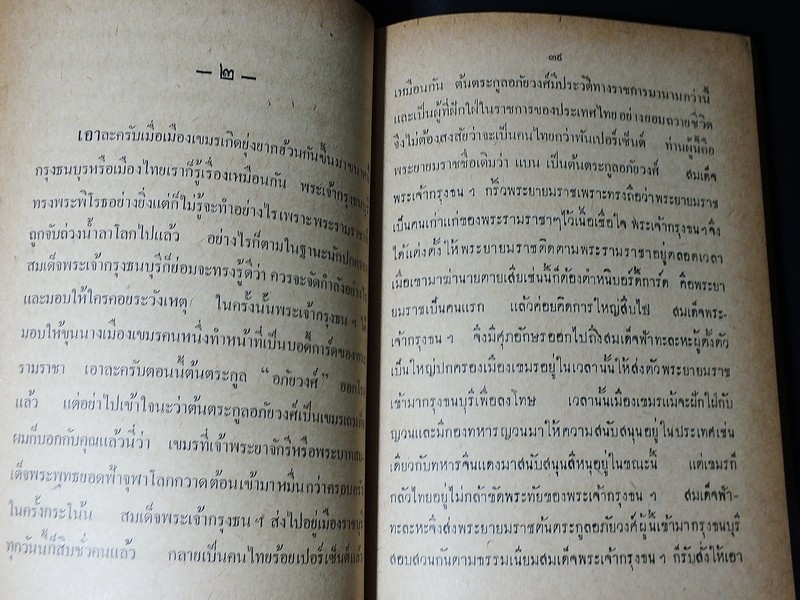 — ๒ —
เอาละครับเมื่อเมืองเขมรเกิดยุ่งยากฮ้วนกันขึ้นมาขนาด
กรุงธนบุรหรือเมืองไทยเราก็รู้เรื่องเหมือนกัน พระเจ้ากรุงธนบุรี
ทรงพระพิโรธอย่างยิ่งแต่ก็ไม่รู้จะทำอย่างไรเพราะพระรามราชา
ถูกจับถ่วงน้ำลาโลกไปแล้ว อย่างไรก็ตามในฐานะนักปกครอง
สมเด็จพระเจ้ากรุงธนบุรีก็ย่อมจะทรงรู้ดีว่า ควรจะจัดกำลังอย่างไร
และมอบให้ใครคอยระวังเหตุ ในครั้งนั้นพระเจ้ากรุงธน ฯ ได้
มอบให้ขุนนางเมืองเขมรคนหนึ่งทำหน้าที่เป็นบอดี้การ์ดของพระ
รามราชา เอาละครับตอนนี้ต้นตระกูล “อภัยวงศ์” ออกโรง
แล้ว แต่อย่าไปเข้าใจนะว่าต้นตระกูลอภัยวงศ์เป็นเขมรเสร็จ
ผมก็บอกกับคุณแล้วนี่ว่า เขมรที่เจ้าพระยาจักรีหรือพระบาทสม
เด็จพระพุทธยอดฟ้าจุฬาโลกกวาดต้อนเข้ามาหมื่นกว่าครอบครัว
ในครั้งกระโน้น สมเด็จพระเจ้ากรุงธน ฯ ส่งไปอยู่เมืองราชบุรี
ทุกวันนี้ก็สิบชั่วคนแล้ว กลายเป็นคนไทยร้อยเปอร์เซ็นต์แล้ว
๓๙
เหมือนกัน ต้นตระกูลอภัยวงศ์มีประวัติทางราชการมานานกว่านี้
และเป็นผู้ที่ฝักใฝ่ในราชการของประเทศไทย อย่างยอมถวายชีวิต
จึงไม่ต้องสงสัยว่าจะเป็นคนไทยกว่าพันเปอร์เซ็นต์ ท่านผู้นี้คือ
พระยายมราชชื่อเดิมว่า แบน เป็นต้นตระกูลอภัยวงศ์ สมเด็จ
พระเจ้ากรุงธน ฯ กริ้วพระยายมราชเพราะทรงถือว่าพระยายมราช
เป็นคนเก่าแก่ของพระรามราชาๆไว้เนื้อเชื่อใจ พระเจ้ากรุงธน ฯจึง
ได้แต่งตั้งให้พระยายมราชติดตามพระรามราชาอยู่ตลอดเวลา
เมื่อเขามาฆ่านายตายเสียเช่นนี้ก็ต้องตำหนิบอร์ดี้การ์ด คือพระยา
ยมราชเป็นคนแรก แล้วค่อยคิดการใหญ่สืบไป สมเด็จพระ-
เจ้ากรุงธน ฯ จึงมีศุภอักษรออกไปถึงสมเด็จฟ้าทะละหะผู้ตั้งตัว
เป็นใหญ่ปกครองเมืองเขมรอยู่ในเวลานั้นให้ส่งตัวพระยายมราช
เข้ามากรุงธนบุรีเพื่อลงโทษ เวลานั้นเมืองเขมรแม้จะฝักใฝ่กับ
ญวนและมีกองทหารญวนมาให้ความสนับสนุนอยู่ในประเทศเช่น
เดียวกับทหารจีนแดงมาสนับสนุนสีหนุอยู่ในขณะนี้ แต่เขมรก็
กลัวไทยอยู่ไม่กล้าขัดพระทัยของพระเจ้ากรุงธน ฯ สมเด็จฟ้า-
ทะละหะจึงส่งพระยายมราชต้นตระกูลอภัยวงศ์ผู้นี้เข้ามากรุงธนบุรี
สอบสวนกันตามธรรมเนียมสมเด็จพระเจ้ากรุงธน ฯ ก็รับสั่งให้เอา